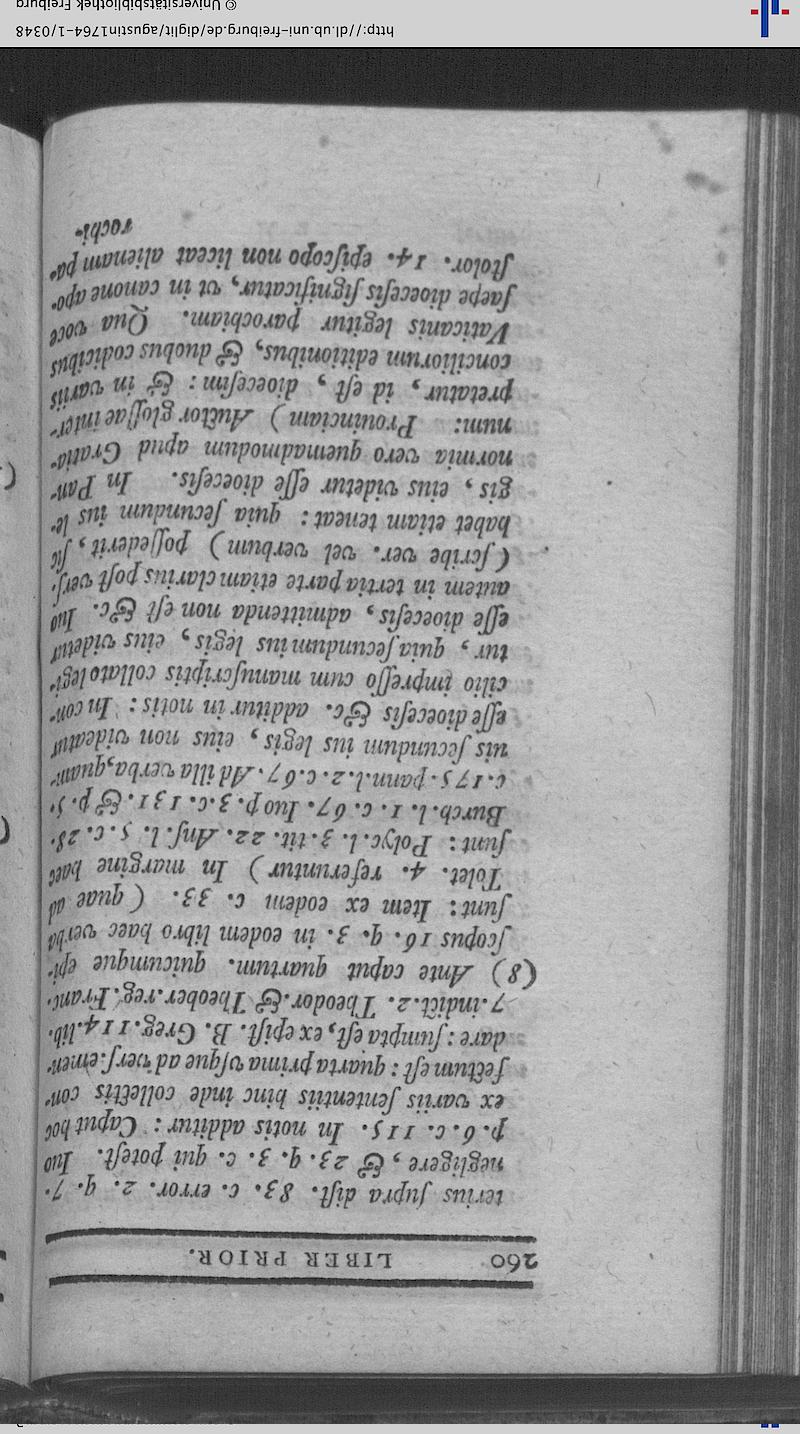 260 LIBER PRIOR.
terius supra dist. 83. c. error. 2. q. 7.
negligere, & 23. q. 3. c. qui potest. Iuo
p. 6. c. 115. In notis additur: Caput hoc
ex variis sententiis hinc inde collectis con-
fectum est: quarta prima vsque ad vers. emen-
dare: sumpta est, ex epist. B. Greg. 114. lib.
7. indict. 2. Theodor. & Theober. reg. Franc.
(8) Ante caput quartum. quicumque epi-
scopus 16. q. 3. in eodem libro haec verba
sunt: Item ex eodem c. 33. (quae ad
Tolet. 4. referuntur) In margine haec
sunt: Polyc. l. 3. tit. 22. Ans. l. 5. c. 28.
Burch. l. 1. c. 67. Iuo p. 3. c. 131. & p. 5.
c. 175. pann. l. 2. c. 67. Ad illa verba, quam-
uis secundum ius legis, eius non videatur
esse dioecesis &c. additur in notis: In con-
cilio impresso cum manuscriptis collato legi-
tur, quia secundum ius legis, eius videtur
esse dioecesis, admittenda non est &c. Iuo
autem in tertia parte etiam clarius post vers.
(scribe ver. vel verbum) possederit, sic
habet etiam teneat: quia secundum ius le-
gis, eius videtur esse dioecesis. In Pan-
normia vero quemadmodum apud Gratia-
num: Prouinciam) Auctor glossae inter-
pretatur, id est, dioecesim: & in variis
conciliorum editionibus, & duobus codicibus
Vaticanis legitur parochiam. Qua voce
saepe dioecesis significatur, vt in canone apo-
stolor. 14. episcopo non liceat alienam pa-
rochi-
http://dl.ub.uni-freiburg.de/diglit/agustin1764-1/0348
© Universitätsbibliothek Freiburg